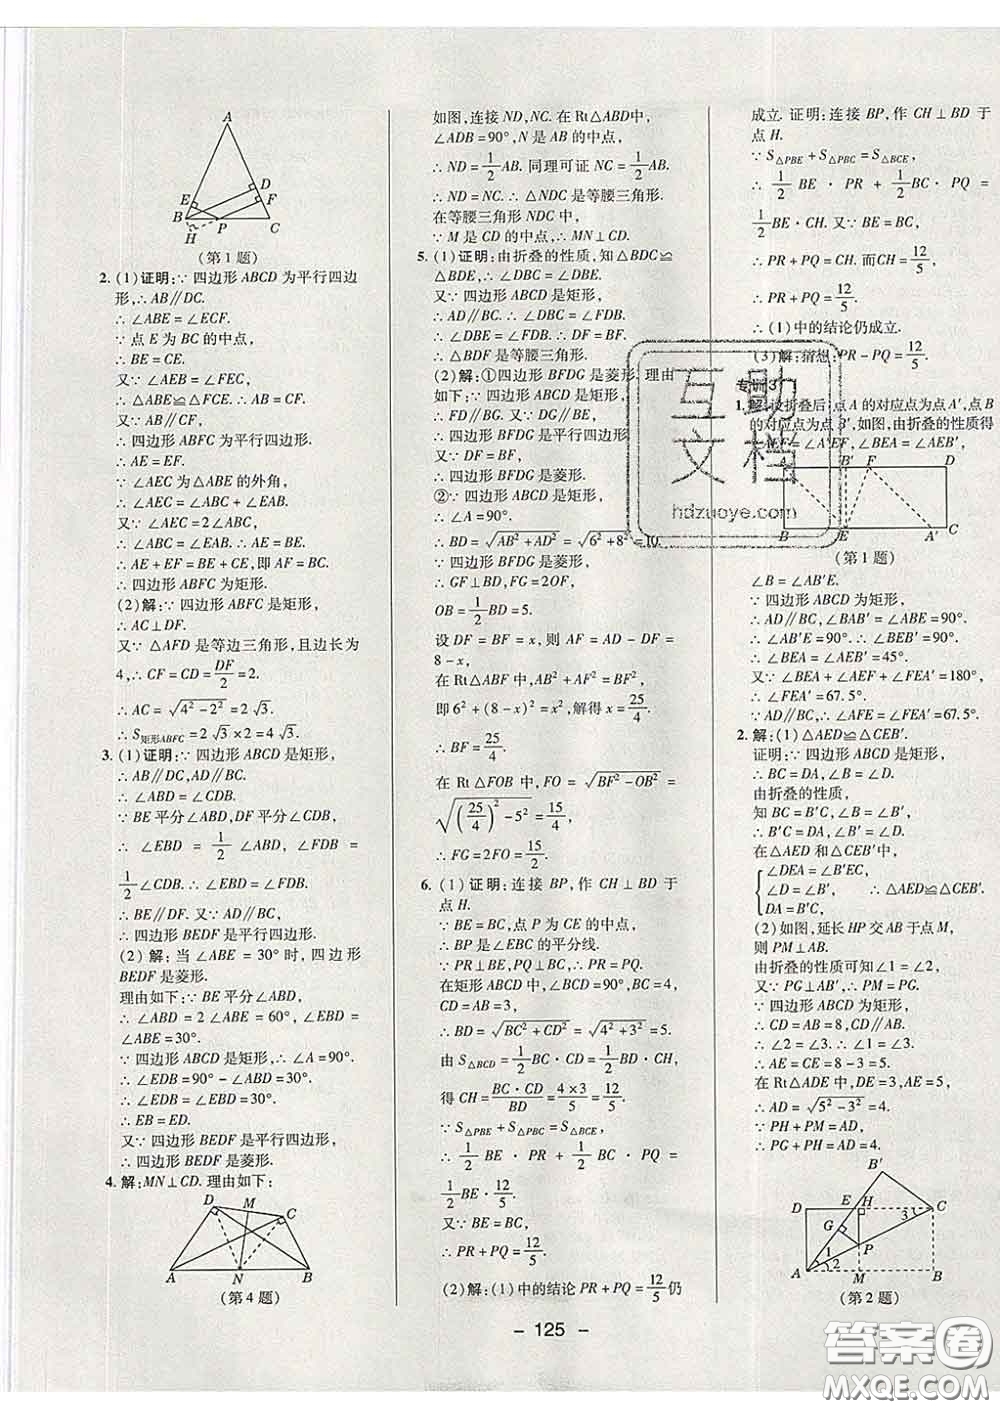 A
E
D
F
B
P
C
H
(第1题)
2. (1)证明:∵四边形ABCD为平行四边
形,∴AB∥DC.
∴∠ABE=∠ECF.
∵点E为BC的中点,
∴BE=CE.
又∵∠AEB=∠FEC,
∴△ABE≌△FCE. ∴AB=CF.
∴四边形ABFC为平行四边形.
∴AE=EF.
∵∠AEC为△ABE的外角,
∴∠AEC=∠ABC+∠EAB.
又∵∠AEC=2∠ABC,
∴∠ABC=∠EAB. ∴AE=BE.
∴AE+EF=BE+CE,即AF=BC.
∴四边形ABFC为矩形.
(2)解:∵四边形ABFC是矩形,
∴AC⊥DF.
又∵△AFD是等边三角形,且边长为
4,∴CF=CD=DF/2=2.
∴AC=√(4²-2²)=2√3.
∴S矩形ABFC=2√3×2=4√3.
3. (1)证明:∵四边形ABCD是矩形,
∴AB∥DC,AD∥BC.
∴∠ABD=∠CDB.
∵BE平分∠ABD,DF平分∠CDB,
∴∠EBD=1/2∠ABD,∠FDB=
1/2∠CDB. ∴∠EBD=∠FDB.
∴BE∥DF. 又∵AD∥BC,
∴四边形BEDF是平行四边形.
(2)解:当∠ABE=30°时,四边形
BEDF是菱形.
理由如下:∵BE平分∠ABD,
∴∠ABD=2∠ABE=60°,∠EBD=
∠ABE=30°.
∵四边形ABCD是矩形,∴∠A=90°.
∴∠EDB=90°-∠ABD=30°.
∴∠EDB=∠EBD=30°.
∴EB=ED.
又∵四边形BEDF是平行四边形,
∴四边形BEDF是菱形.
4. 解:MN⊥CD. 理由如下:
D
M
C
A
N
B
(第4题)
如图,连接ND,NC. 在Rt△ABD中,
∠ADB=90°,N是AB的中点,
∴ND=1/2AB. 同理可证NC=1/2AB.
∴ND=NC. ∴△NDC是等腰三角形.
在等腰三角形NDC中,
∵M是CD的中点,∴MN⊥CD.
5. (1)证明:由折叠的性质,知△BDC≌
△BDE,∴∠DBC=∠DBE.
又∵四边形ABCD是矩形,
∴AD∥BC. ∴∠DBC=∠FDB.
∴∠DBE=∠FDB. ∴DF=BF.
∴△BDF是等腰三角形.
(2)解:①四边形BFDG是菱形. 理由
如下:∵四边形ABCD是矩形,
∴FD∥BG. 又∵DG∥BE,
∴四边形BFDG是平行四边形.
又∵DF=BF,
∴四边形BFDG是菱形.
②∵四边形ABCD是矩形,
∴∠A=90°.
∴BD=√(AB²+AD²)=√(6²+8²)=10.
∵四边形BFDG是菱形,
∴GF⊥BD,FG=2OF,
OB=1/2BD=5.
设DF=BF=x,则AF=AD-DF=
8-x,
在Rt△ABF中,AB²+AF²=BF²,
即6²+(8-x)²=x²,解得x=25/4.
∴BF=25/4.
在Rt△FOB中,FO=√(BF²-OB²)=
√((25/4)²-5²)=15/4.
∴FG=2FO=15/2.
6. (1)证明:连接BP,作CH⊥BD于
点H.
∵BE=BC,点P为CE的中点,
∴BP是∠EBC的平分线.
∵PR⊥BE,PQ⊥BC,∴PR=PQ.
在矩形ABCD中,∠BCD=90°,BC=4,
CD=AB=3,
∴BD=√(BC²+CD²)=√(4²+3²)=5.
由S△BCD=1/2BC·CD=1/2BD·CH,
得CH=BC·CD/BD=4×3/5=12/5.
∵S△PBE+S△PBC=S△BCE,
∴1/2BE·PR+1/2BC·PQ=
1/2BE·12/5.
又∵BE=BC,
∴PR+PQ=12/5.
(2)解:(1)中的结论PR+PQ=12/5仍
成立. 证明:连接BP,作CH⊥BD于
点H.
∵S△PBE+S△PBC=S△BCE,
∴1/2BE·PR+1/2BC·PQ=
1/2BE·CH. 又∵BE=BC,
∴PR+PQ=CH. 而CH=12/5,
∴PR+PQ=12/5.
∴(1)中的结论仍成立.
(3)解:猜想:PR-PQ=12/5.
专训3
1. 解:设折叠后,点A的对应点为点A′,点B
的对应点为点B′,如图,由折叠的性质得
∠AEF=∠A′EF,∠BEA=∠AEB′,
A
B′
F
D
B
E
A′
C
(第1题)
∠B=∠AB′E.
∵四边形ABCD为矩形,
∴AD∥BC,∠BAB′=∠ABE=90°.
∴∠AB′E=90°. ∴∠BEB′=90°.
∴∠BEA=∠AEB′=45°.
又∵∠BEA+∠AEF+∠FEA′=180°,
∴∠FEA′=67.5°.
∵AD∥BC,∴∠AFE=∠FEA′=67.5°.
2. 解:(1)△AED≌△CEB′.
证明:∵四边形ABCD为矩形,
∴BC=DA,∠B=∠D.
由折叠的性质,
知BC=B′C,∠B=∠B′,
∴B′C=DA,∠B′=∠D.
在△AED和△CEB′中,
∠DEA=∠B′EC,
∠D=∠B′, ∴△AED≌△CEB′.
DA=B′C,
(2)如图,延长HP交AB于点M,
则PM⊥AB.
由折叠的性质可知∠1=∠2,
又∵PG⊥AB′,∴PM=PG.
∵四边形ABCD为矩形,
∴CD=AB=8,CD∥AB.
∴∠2=∠3. ∴∠1=∠3.
∴AE=CE=8-3=5.
在Rt△ADE中,DE=3,AE=5,
∴AD=√(5²-3²)=4.
∵PH+PM=AD,
∴PG+PH=AD=4.
B′
D
E
H
C
3
G
P
1
2
A
M
B
(第2题)
- 125 -
互助
文档
hdzuoye.com
答案圈
MXQE.COM